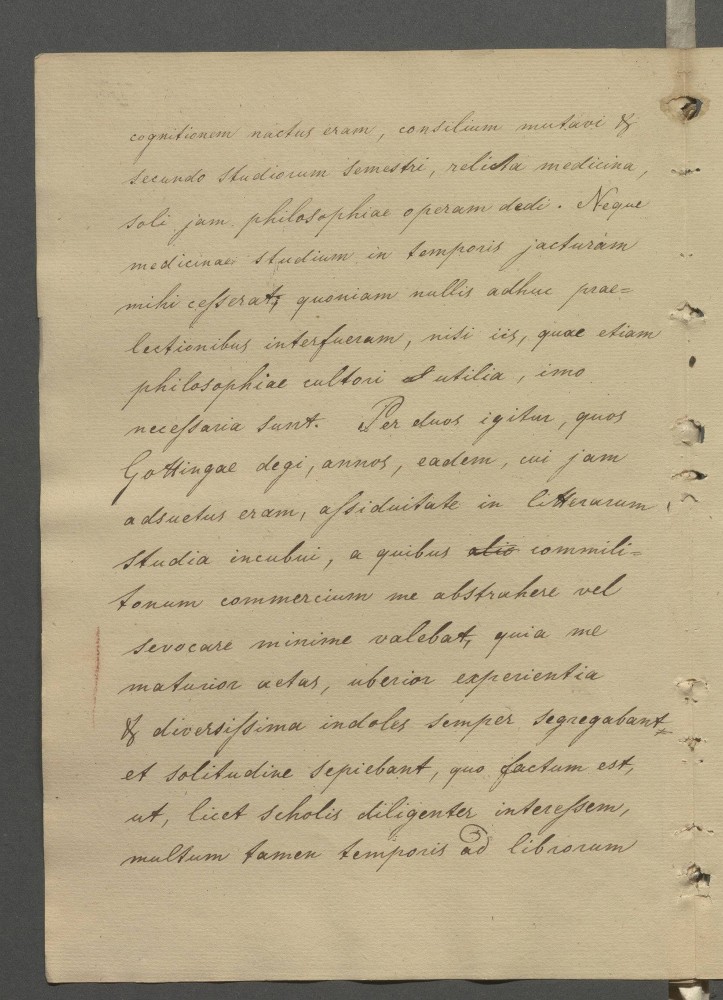 cognitionem nactus eram, consilium mutavi &
secundo studiorum semestri, relicta medicina,
soli jam philosophiae operam dedi. Neque
medicinae studium in temporis jacturam
mihi cesserat, quoniam nullis adhuc prae=
lectionibus interfueram, nisi iis, quae etiam
philosophiae cultori utilia, imo
necessaria sunt. Per duos igitur, quos
Gottingae degi, annos, eadem, cui jam
adsuetus eram, assiduitate in litterarum
studia incubui, a quibus alio commili=
tonum commercium me abstrahere vel
sevocare minime valebat, quia me
maturior aetas, uberior experientia
& diversissima indoles semper segregabant
et solitudine sepiebant, quo factum est,
ut, licet scholis diligenter interessem,
multum tamen temporis ad librorum